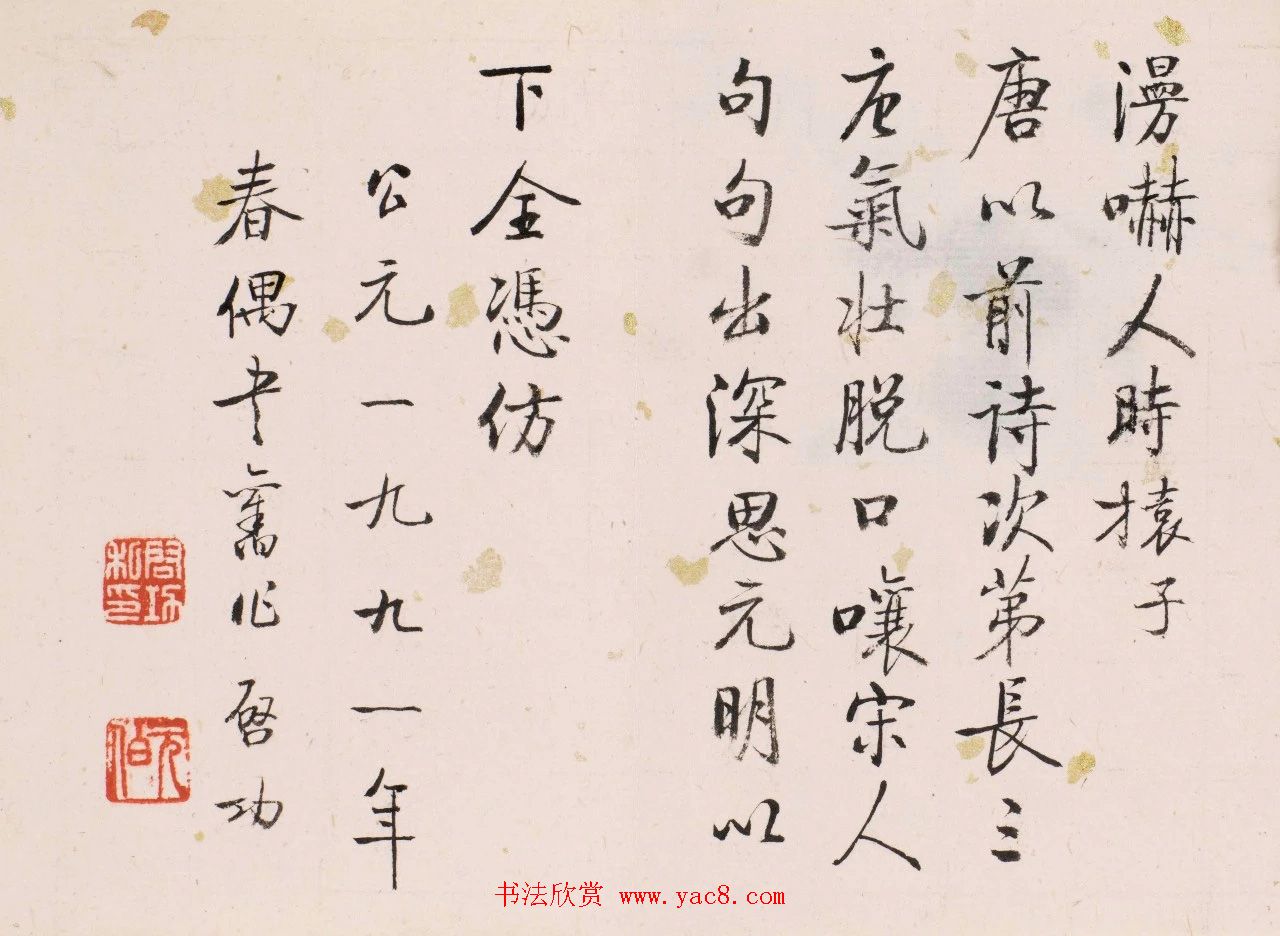 漫嚇人時猿子
唐以前诗次第長三
唐氣壮脱口嚷宋人
句句出深思元明以
下全憑仿
公元一九九一年
春偶书舊作 啓功
啓功私印
元伯
书法欣赏 www.yac8.com